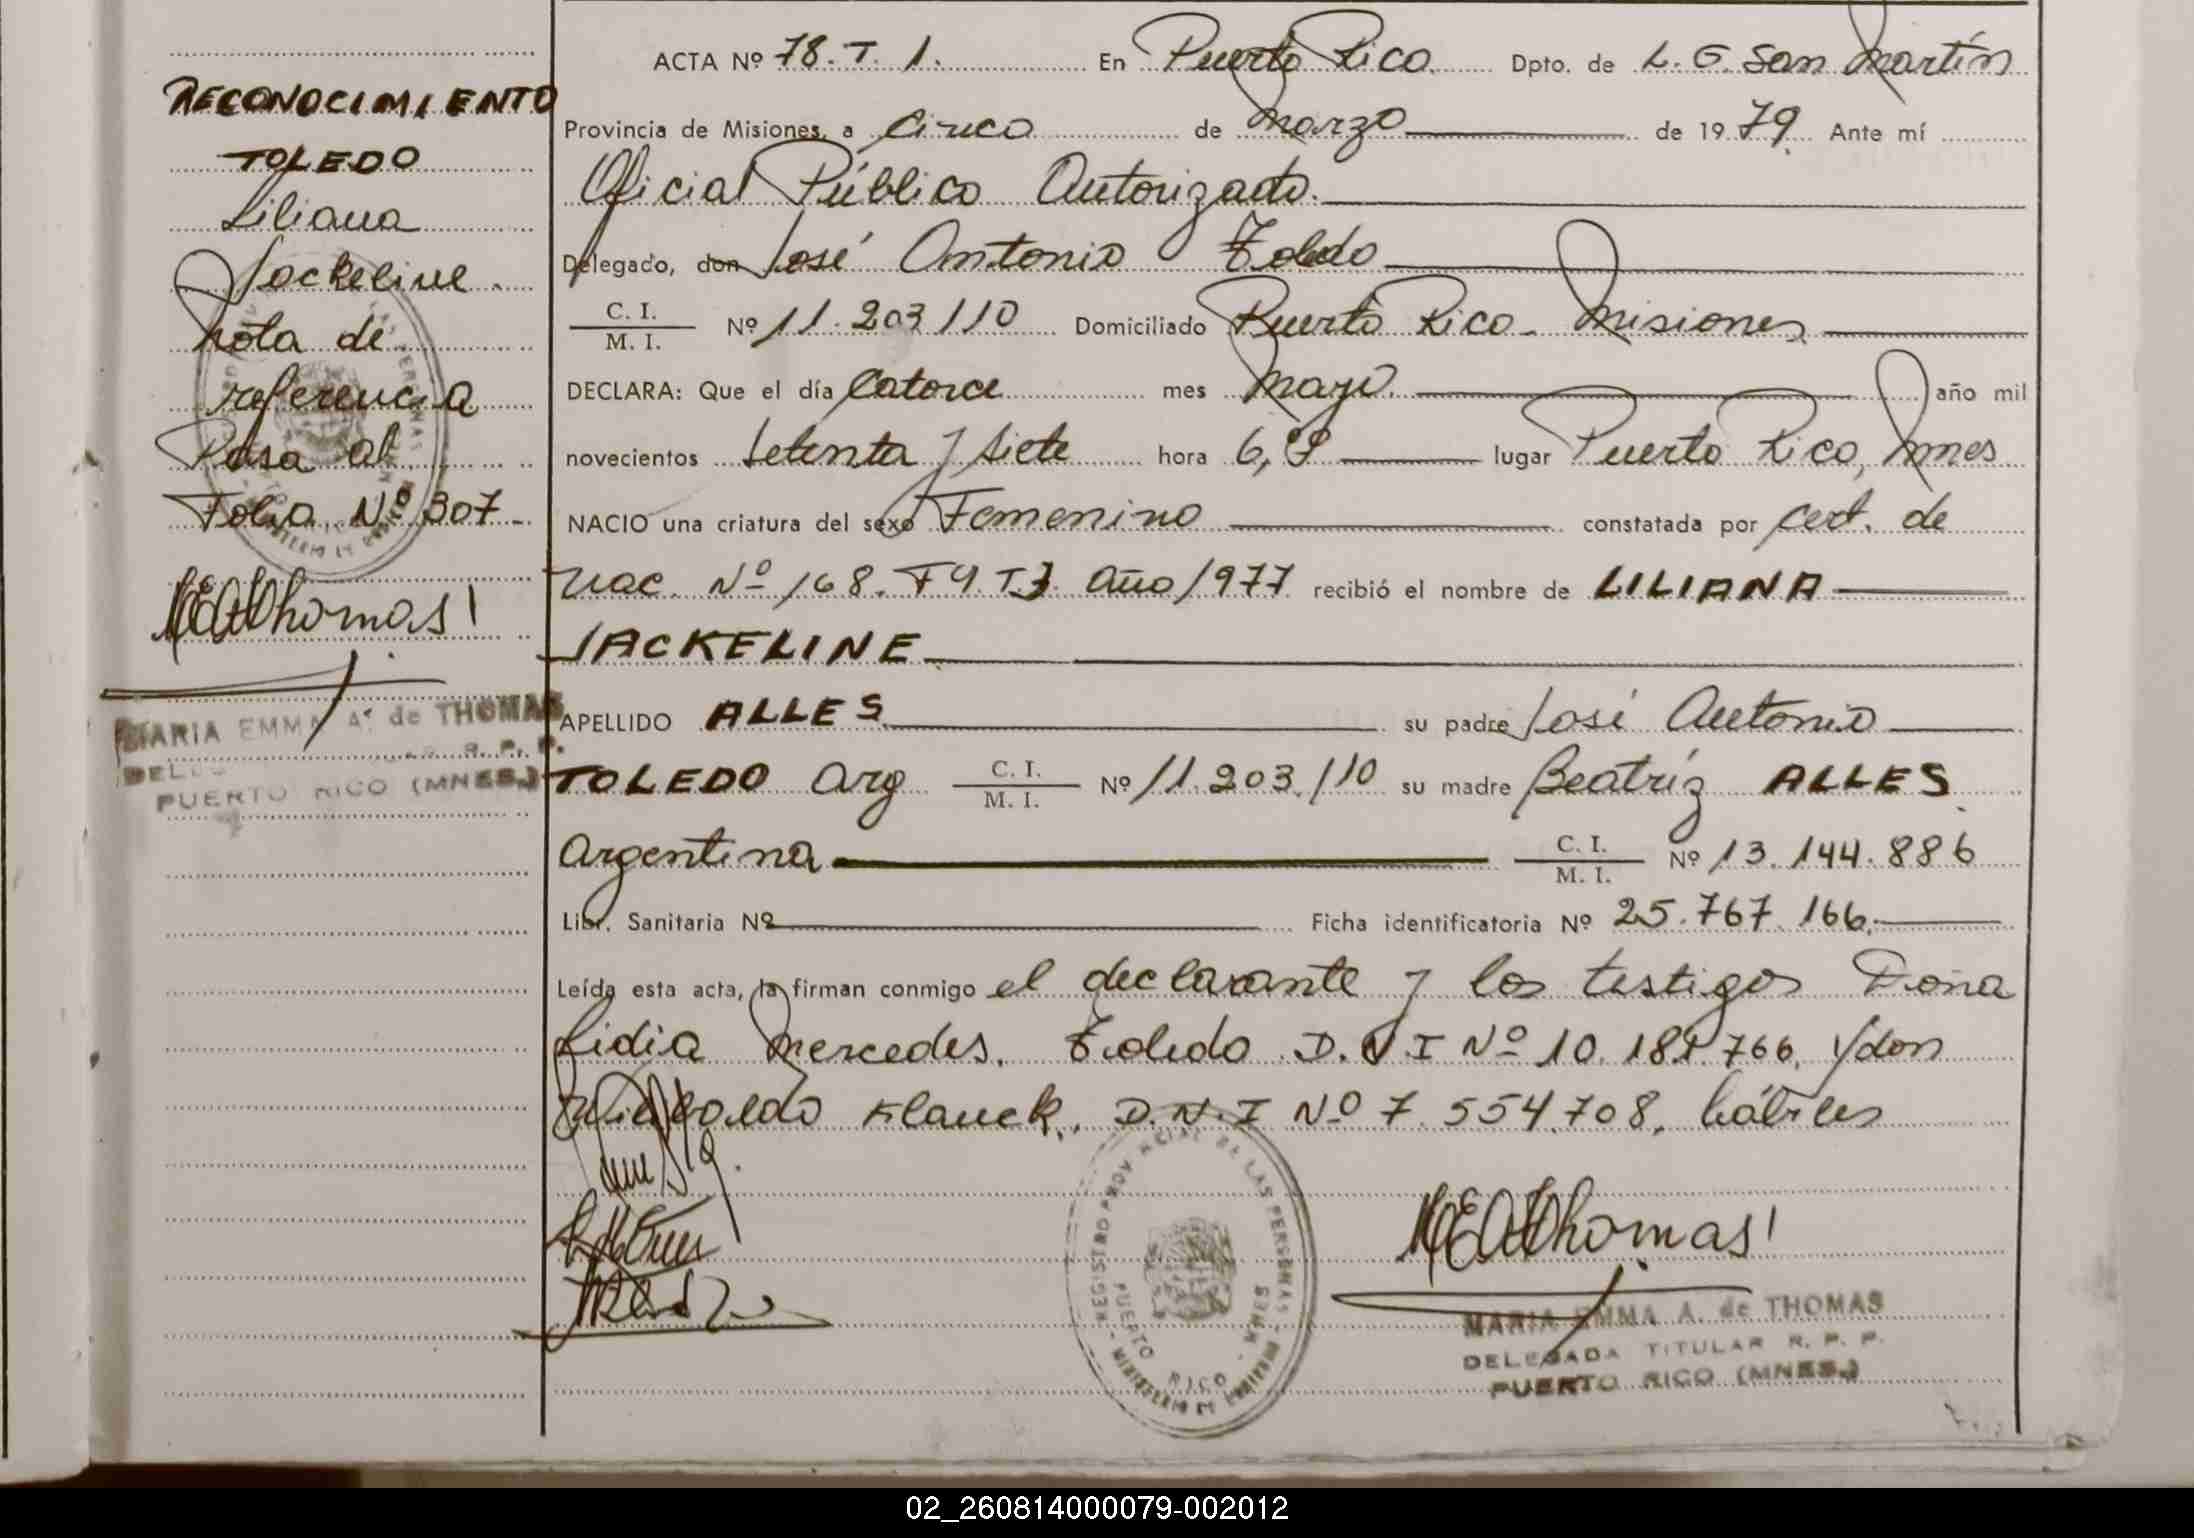 RECONOCIMIENTO
TOLEDO
Liliana
Jackeline.
nota de
referencia
Pasa al
Folio Nº 307-
MEAThomas
MARIA EMMA A. de THOMAS
PUERTO RICO (MNES.)
ACTA Nº 78. T. 1. En Puerto Rico Dpto. de L. G. San Martín
Provincia de Misiones, a Cinco de Marzo de 1979. Ante mí
Oficial Público Autorizado.
Delegado, don José Antonio Toledo
C. I. / M. I. Nº 11.203.110 Domiciliado Puerto Rico - Misiones
DECLARA: Que el día Catorce mes Mayo año mil
novecientos Setenta y siete hora 6, lugar Puerto Rico, Mnes
NACIO una criatura del sexo Femenino constatada por cert. de
nac. Nº 168. Fº 9. T. Año 1977 recibió el nombre de LILIANA
JACKELINE
APELLIDO ALLES su padre José Antonio
TOLEDO Arg C. I. / M. I. Nº 11.203.110 su madre Beatríz ALLES
Argentina C. I. / M. I. Nº 13.144.886
Libr. Sanitaria Nº Ficha identificatoria Nº 25.767.166.
Leída esta acta, la firman conmigo el declarante y los testigos Doña
Lidia Mercedes Toledo D.N.I Nº 10.18 766, y don
Klauck, D.N.I Nº 7.554.708, hábiles
REGISTRO PROVINCIAL DE LAS PERSONAS
PUERTO RICO - MNES
MINISTERIO DE GOBIERNO
MEAThomas
MARIA EMMA A. de THOMAS
DELEGADA TITULAR R. P. P.
PUERTO RICO (MNES.)
02_260814000079-002012